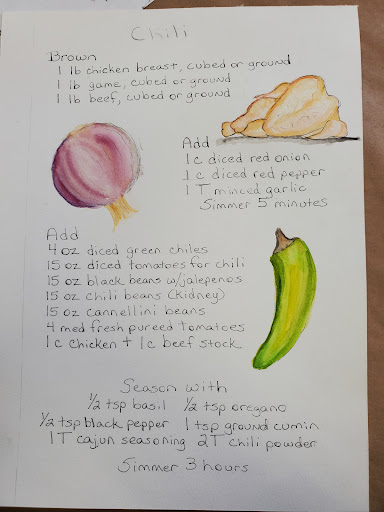 Chili
Brown
1 lb chicken breast, cubed or ground
1 lb game, cubed or ground
1 lb beef, cubed or ground
Add
1 c diced red onion
1 c diced red pepper
1 T minced garlic
Simmer 5 minutes
Add
4 oz diced green chiles
15 oz diced tomatoes for chili
15 oz black beans w/jalepenos
15 oz chili beans (kidney)
15 oz cannellini beans
4 med fresh pureed tomatoes
1 c chicken + 1 c beef stock
Season with
1/2 tsp basil 1/2 tsp oregano
1/2 tsp black pepper 1 tsp ground cumin
1 T cajun seasoning 2T chili powder
Simmer 3 hours